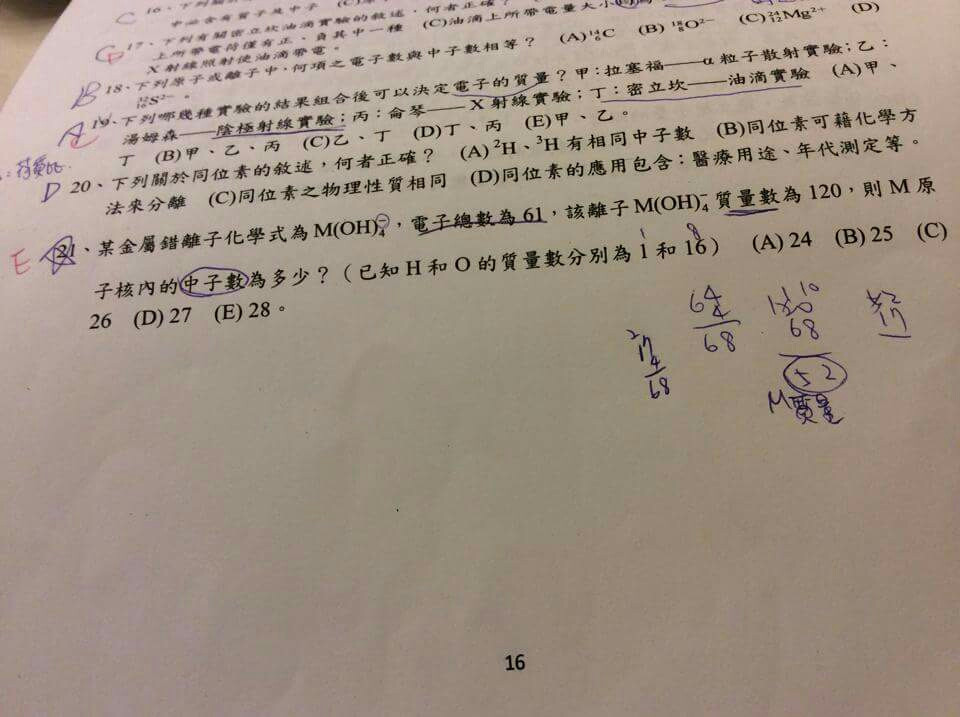 C 16、下列關於
中必含有質子是中子 (C)原
C D 17、下列有關密立坎油滴實驗的敘述，何者正確？
上所帶電荷僅有正、負其中一種 (C)油滴上所帶電量大小
X 射線照射使油滴帶電。
B 18、下列原子或離子中，何項之電子數與中子數相等？ (A)¹⁴₆C (B) ¹⁸₈O²⁻ (C)²⁴₁₂Mg²⁺ (D)
³²₁₆S²⁻。
19、下列哪幾種實驗的結果組合後可以決定電子的質量？甲：拉塞福——α 粒子散射實驗；乙：
湯姆森——陰極射線實驗；丙：侖琴——X 射線實驗；丁：密立坎——油滴實驗 (A)甲、
丁 (B)甲、乙、丙 (C)乙、丁 (D)丁、丙 (E)甲、乙。
D 20、下列關於同位素的敘述，何者正確？ (A) ²H、³H 有相同中子數 (B)同位素可藉化學方
法來分離 (C)同位素之物理性質相同 (D)同位素的應用包含：醫療用途、年代測定等。
E 21、某金屬錯離子化學式為 M(OH)₄⁻，電子總數為 61，該離子 M(OH)₄⁻質量數為 120，則 M 原
1 8
子核內的中子數為多少？（已知 H 和 O 的質量數分別為 1 和 16） (A) 24 (B) 25 (C)
26 (D) 27 (E) 28。
64
4
68
2
17
4
68
10
120
68
52
M質量
17
16